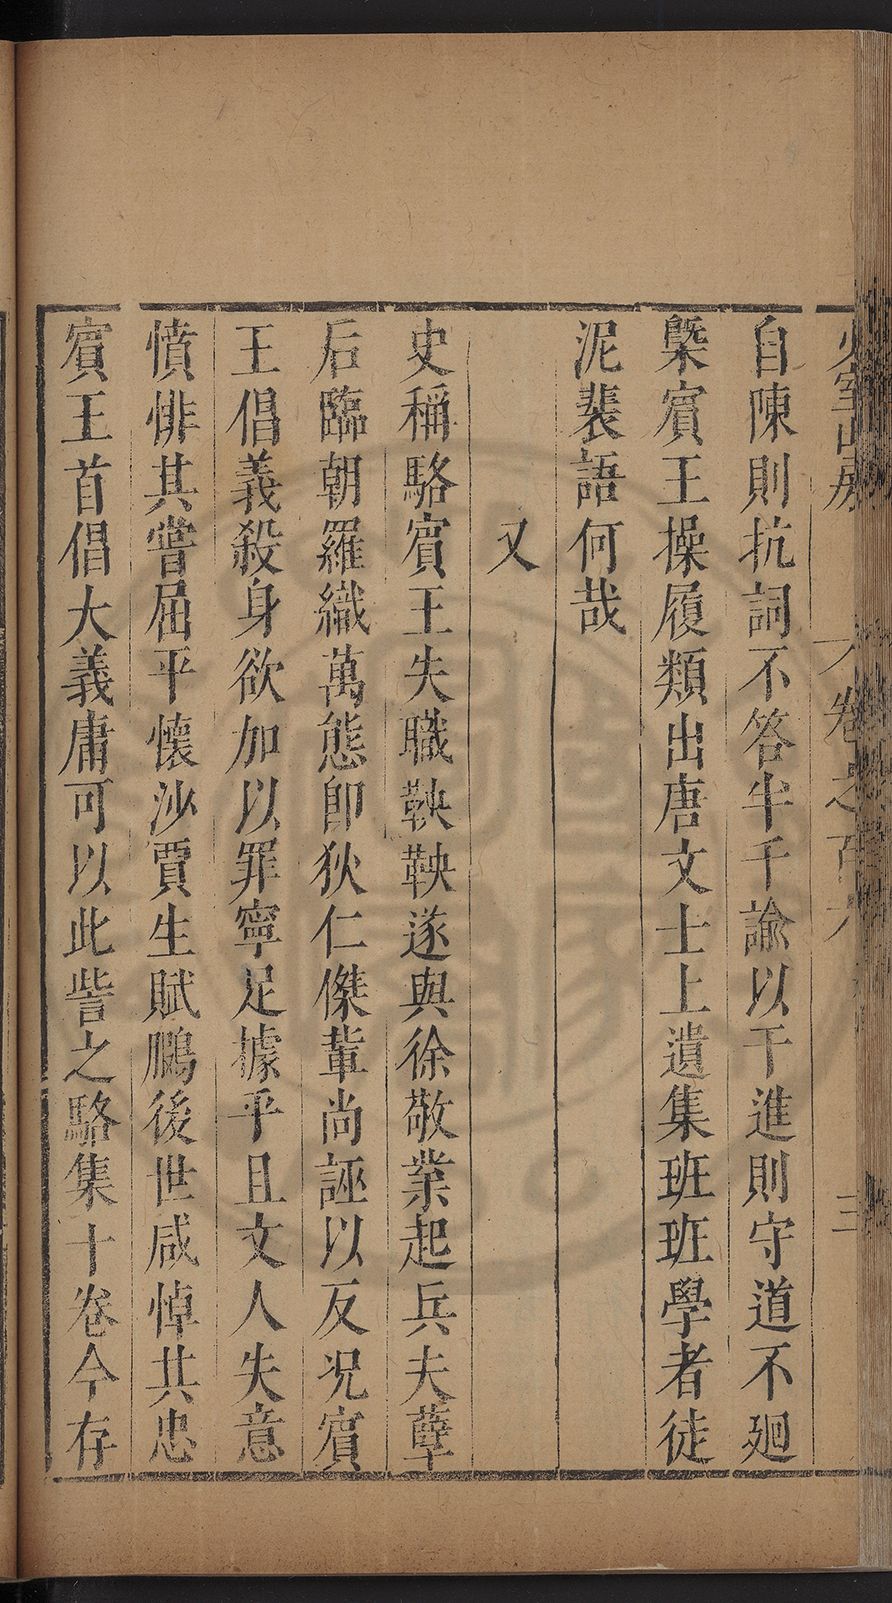 少室山房
卷之百六
三
自陳則抗詞不答半千諭以干進則守道不廻
槩賓王操履類出唐文士上遺集班班學者徒
泥裴語何哉
又
史稱駱賓王失職鞅鞅遂與徐敬業起兵夫孽
后臨朝羅織萬態卽狄仁傑輩尚誣以反况賓
王倡義殺身欲加以罪寧足據乎且文人失意
憤悱其嘗屈平懷沙賈生賦鵩後世咸悼其忠
賓王首倡大義庸可以此訾之駱集十卷今存